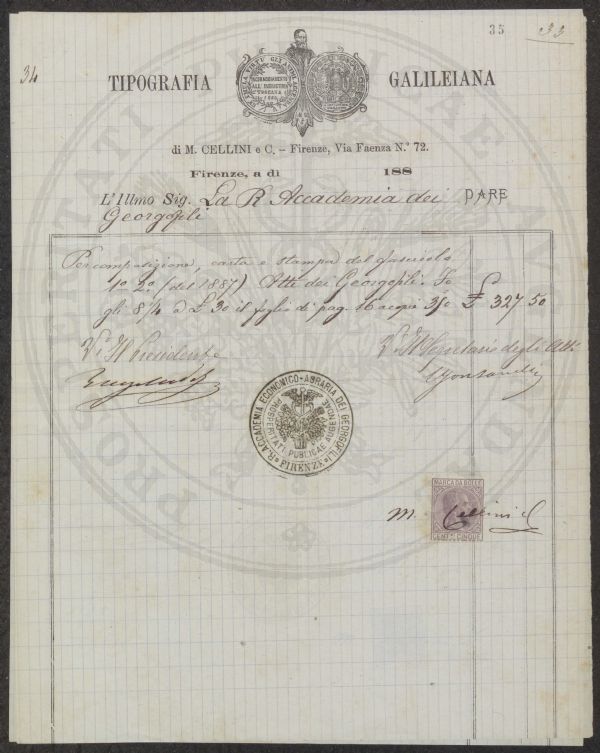 34
35
33
TIPOGRAFIA GALILEIANA
ALL' INDUSTRIA
TOSCANA
di M. CELLINI e C. – Firenze, Via Faenza N.° 72.
Firenze, a dì 188
L'Illmo Sig. La R. Accademia dei DARE
Georgofili
Per composizione, carta e stampa del fascicolo
1° 2° (del 1887) Atti dei Georgofili. Fo
gli 8 1/4 a £ 30 il foglio di pag. 16 copie 350 £ 327 50
V° Il Presidente
V° Il Segretario degli Atti
R. ACCADEMIA ECONOMICO-AGRARIA DEI GEORGOFILI
PROSPERITATI PUBLICAE AUGENDAE
FIRENZE
MARCA DA BOLLO
M. Cellini C
CENT. CINQUE